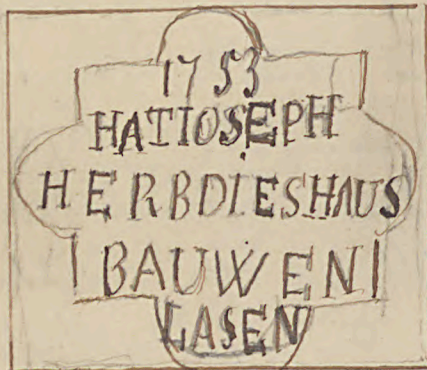 1753
HATIOSEPH
HERBDIESHAUS
BAUWEN
LASEN